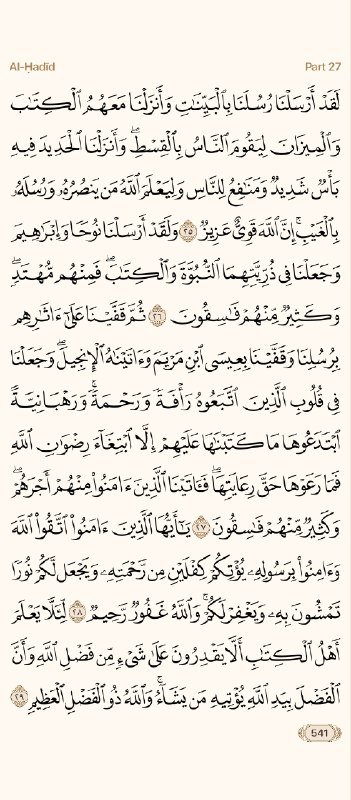 Al-Ḥadīd Part 27
لَقَدْ أَرْسَلْنَا رُسُلَنَا بِٱلْبَيِّنَٰتِ وَأَنزَلْنَا مَعَهُمُ ٱلْكِتَٰبَ
وَٱلْمِيزَانَ لِيَقُومَ ٱلنَّاسُ بِٱلْقِسْطِ ۖ وَأَنزَلْنَا ٱلْحَدِيدَ فِيهِ
بَأْسٌ شَدِيدٌ وَمَنَٰفِعُ لِلنَّاسِ وَلِيَعْلَمَ ٱللَّهُ مَن يَنصُرُهُۥ وَرُسُلَهُۥ
بِٱلْغَيْبِ ۚ إِنَّ ٱللَّهَ قَوِىٌّ عَزِيزٌ ٢٥ وَلَقَدْ أَرْسَلْنَا نُوحًا وَإِبْرَٰهِيمَ
وَجَعَلْنَا فِى ذُرِّيَّتِهِمَا ٱلنُّبُوَّةَ وَٱلْكِتَٰبَ ۖ فَمِنْهُم مُّهْتَدٍ ۖ
وَكَثِيرٌ مِّنْهُمْ فَٰسِقُونَ ٢٦ ثُمَّ قَفَّيْنَا عَلَىٰٓ ءَاثَٰرِهِم
بِرُسُلِنَا وَقَفَّيْنَا بِعِيسَى ٱبْنِ مَرْيَمَ وَءَاتَيْنَٰهُ ٱلْإِنجِيلَ ۖ وَجَعَلْنَا
فِى قُلُوبِ ٱلَّذِينَ ٱتَّبَعُوهُ رَأْفَةً وَرَحْمَةً ۚ وَرَهْبَانِيَّةً
ٱبْتَدَعُوهَا مَا كَتَبْنَٰهَا عَلَيْهِمْ إِلَّا ٱبْتِغَآءَ رِضْوَٰنِ ٱللَّهِ
فَمَا رَعَوْهَا حَقَّ رِعَايَتِهَا ۖ فَـَٔاتَيْنَا ٱلَّذِينَ ءَامَنُوا۟ مِنْهُمْ أَجْرَهُمْ ۖ
وَكَثِيرٌ مِّنْهُمْ فَٰسِقُونَ ٢٧ يَٰٓأَيُّهَا ٱلَّذِينَ ءَامَنُوا۟ ٱتَّقُوا۟ ٱللَّهَ
وَءَامِنُوا۟ بِرَسُولِهِۦ يُؤْتِكُمْ كِفْلَيْنِ مِن رَّحْمَتِهِۦ وَيَجْعَل لَّكُمْ نُورًا
تَمْشُونَ بِهِۦ وَيَغْفِرْ لَكُمْ ۚ وَٱللَّهُ غَفُورٌ رَّحِيمٌ ٢٨ لِّئَلَّا يَعْلَمَ
أَهْلُ ٱلْكِتَٰبِ أَلَّا يَقْدِرُونَ عَلَىٰ شَىْءٍ مِّن فَضْلِ ٱللَّهِ ۙ وَأَنَّ
ٱلْفَضْلَ بِيَدِ ٱللَّهِ يُؤْتِيهِ مَن يَشَآءُ ۚ وَٱللَّهُ ذُو ٱلْفَضْلِ ٱلْعَظِيمِ ٢٩
541